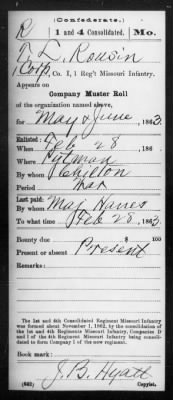 (Confederate.)
R 1 and 4 Consolidated. Mo.
T. L. Rousin
1 Corp, Co. I, 1 Reg't Missouri Infantry.
Appears on
Company Muster Roll
of the organization named above,
for May & June, 1863.
Enlisted:
When Feb 28, 186
Where Pitman
By whom Chilton
Period War
Last paid:
By whom Maj Hanes
To what time Feb 28, 1863.
Bounty due $ 100
Present or absent Present
Remarks:
The 1st and 4th Consolidated Regiment Missouri Infantry
was formed about November 1, 1862, by the consolidation of
the 1st and 4th Regiments Missouri Infantry, Companies D
and I of the 4th Regiment Missouri Infantry being consoli-
dated to form Company I of the new regiment.
Book mark:
J. B. Hyatt
(642) Copyist.